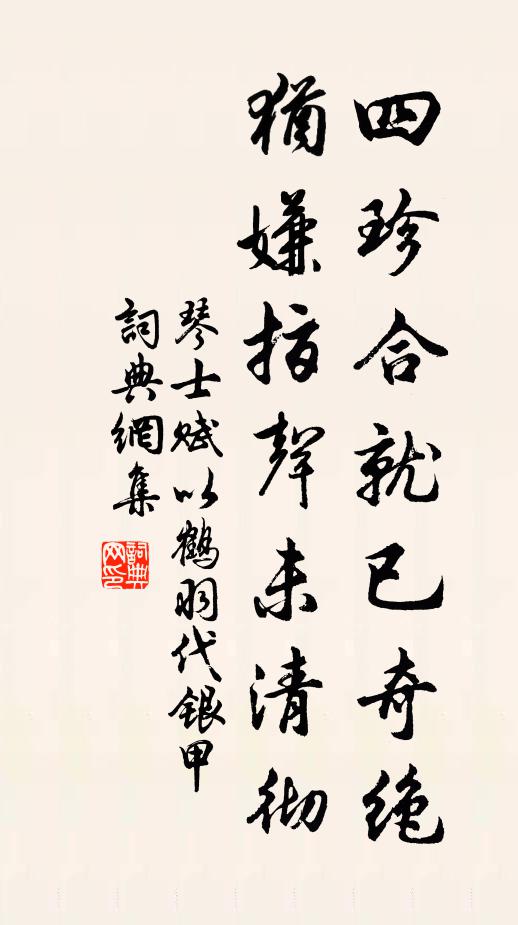 四珍合就已奇絶
猶嫌指聲未清彻
琴士赋以鶴羽代銀甲
詞典網集
詞典
网印